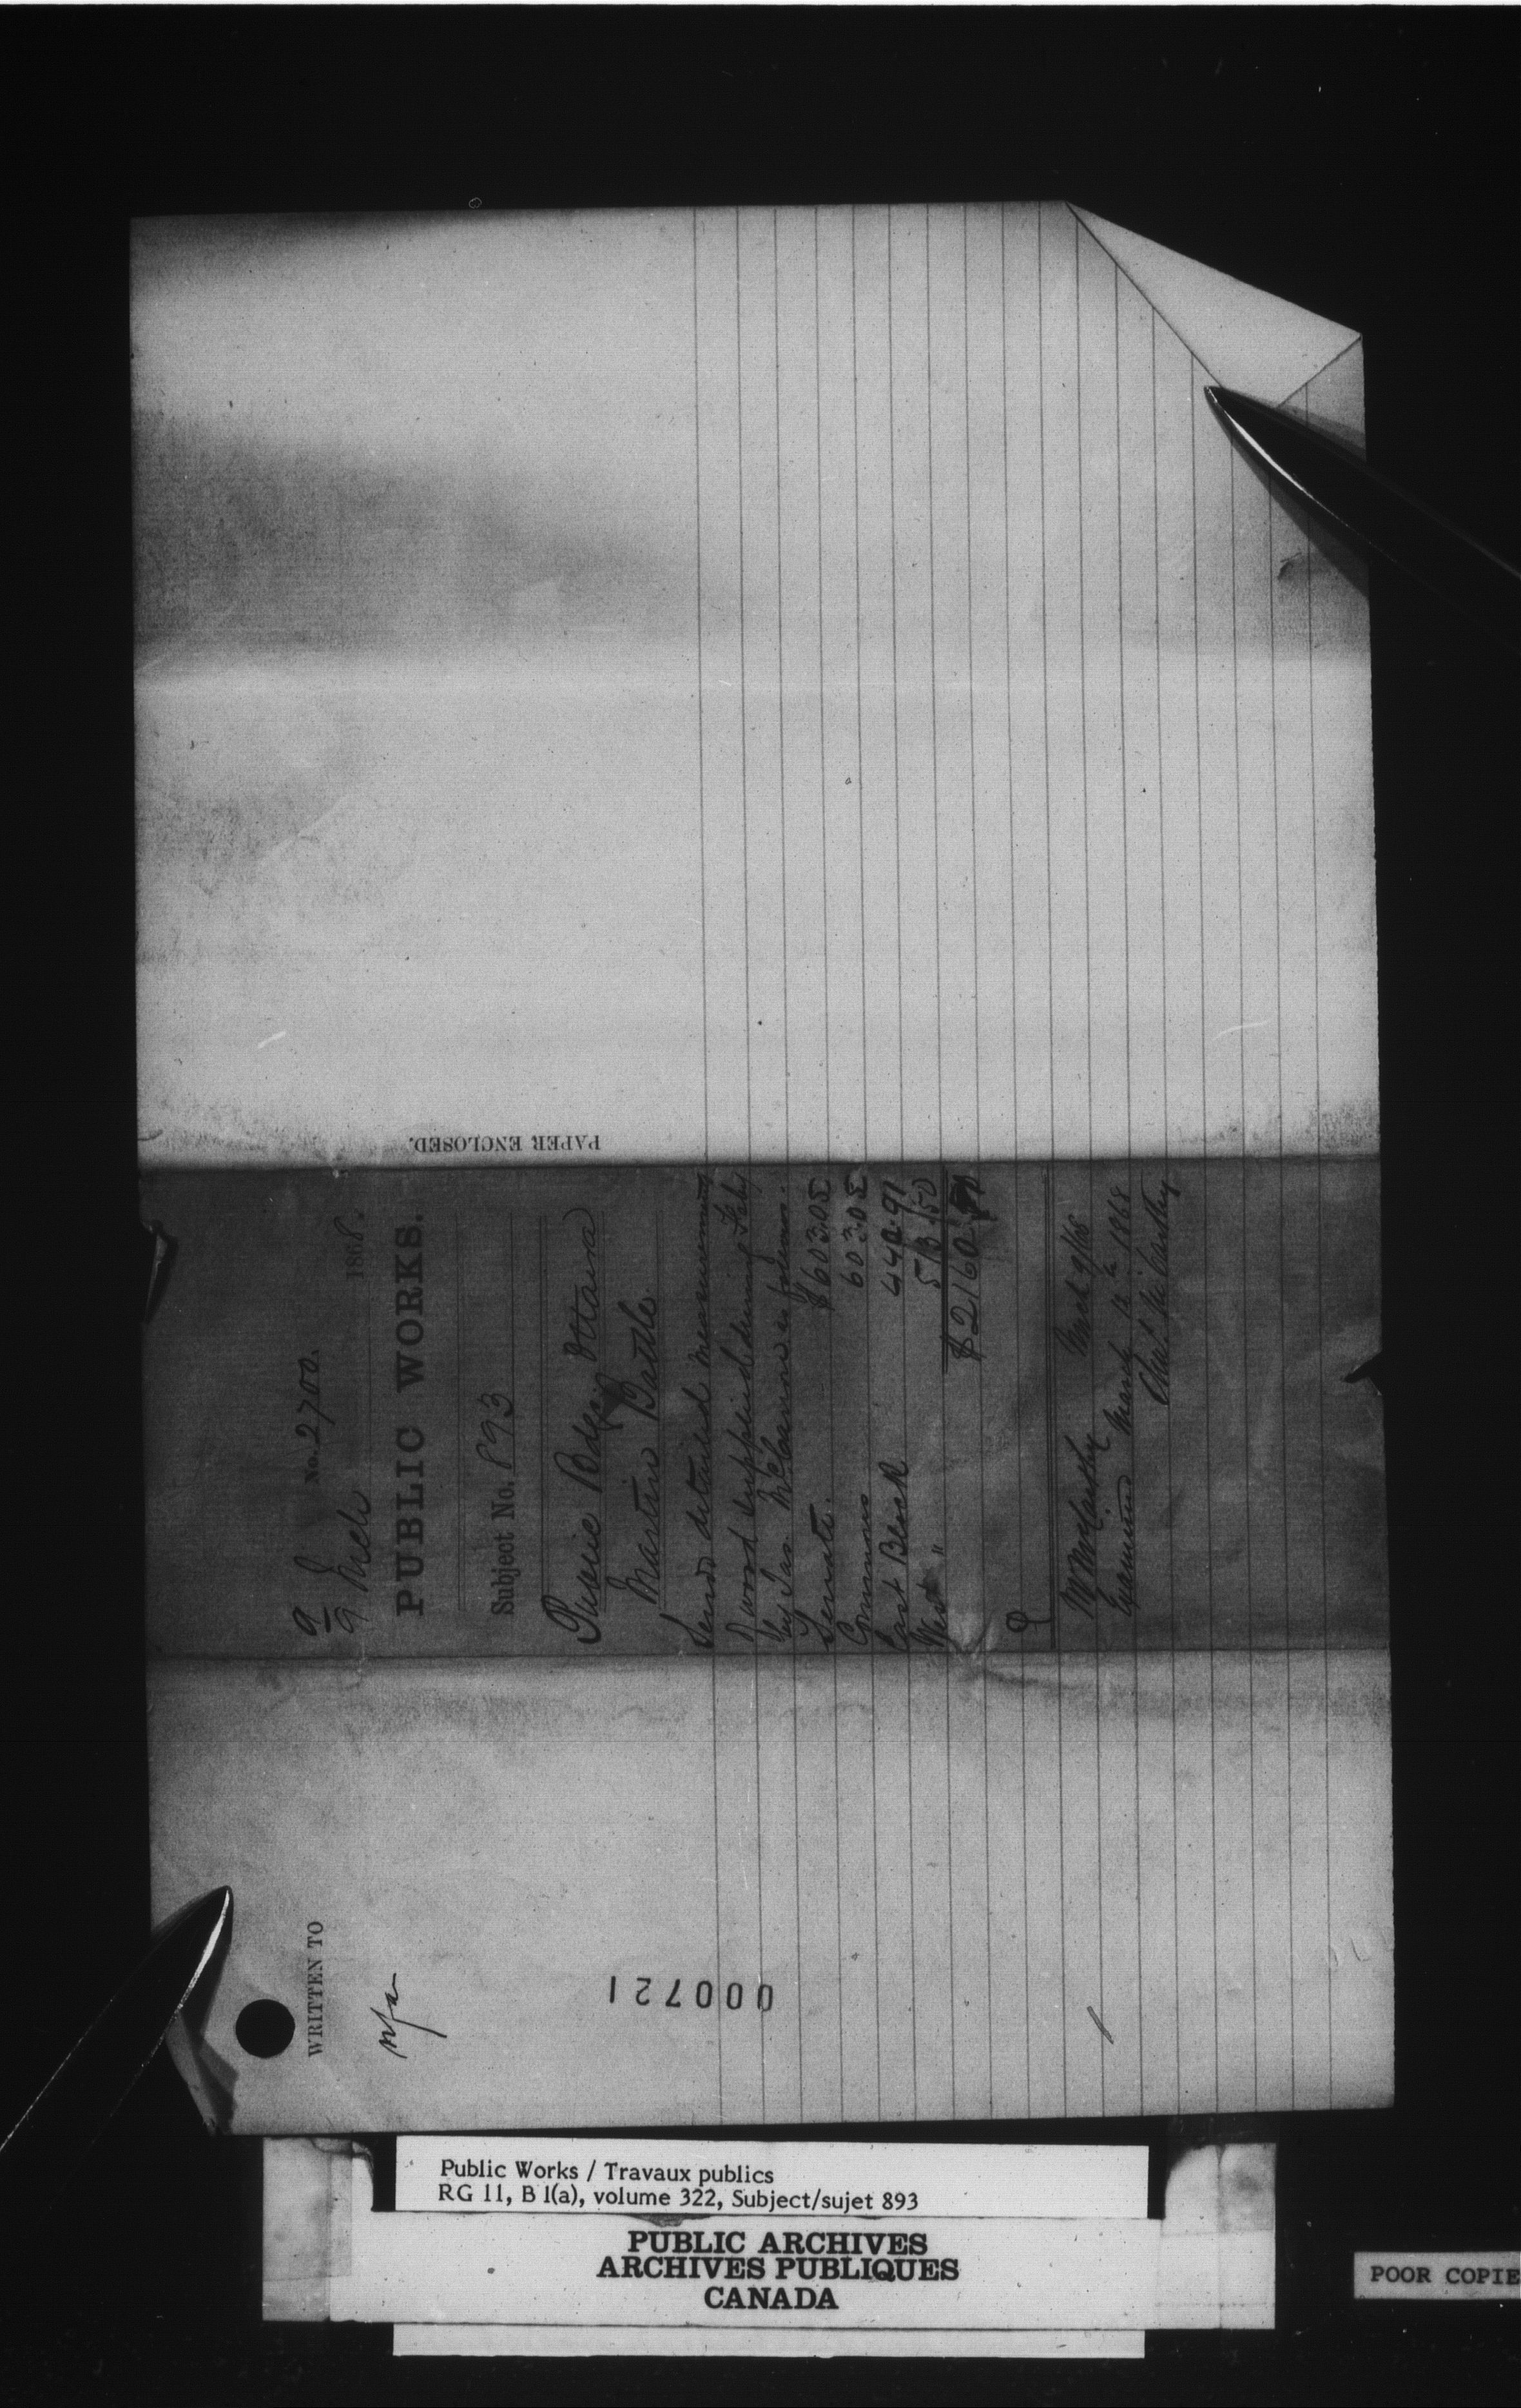 PAPER ENCLOSED.
9
9 Mch
No. 2700.
1868.
PUBLIC WORKS.
Subject No. 893
Public Bdgs Ottawa
Martin Battle.
Sends detailed measurement
of wood supplied during Feby
by Jas. McCarron as follows.
Senate. $603.05
Commons 603.05
East Block 440.91
West " 513.50
$2160.
Mr McCarthy March 9/68
Examined March 12th 1868
Chas. McCarthy
WRITTEN TO
nfa
000721
Public Works / Travaux publics
RG 11, B 1(a), volume 322, Subject/sujet 893
PUBLIC ARCHIVES
ARCHIVES PUBLIQUES
CANADA
POOR COPIE